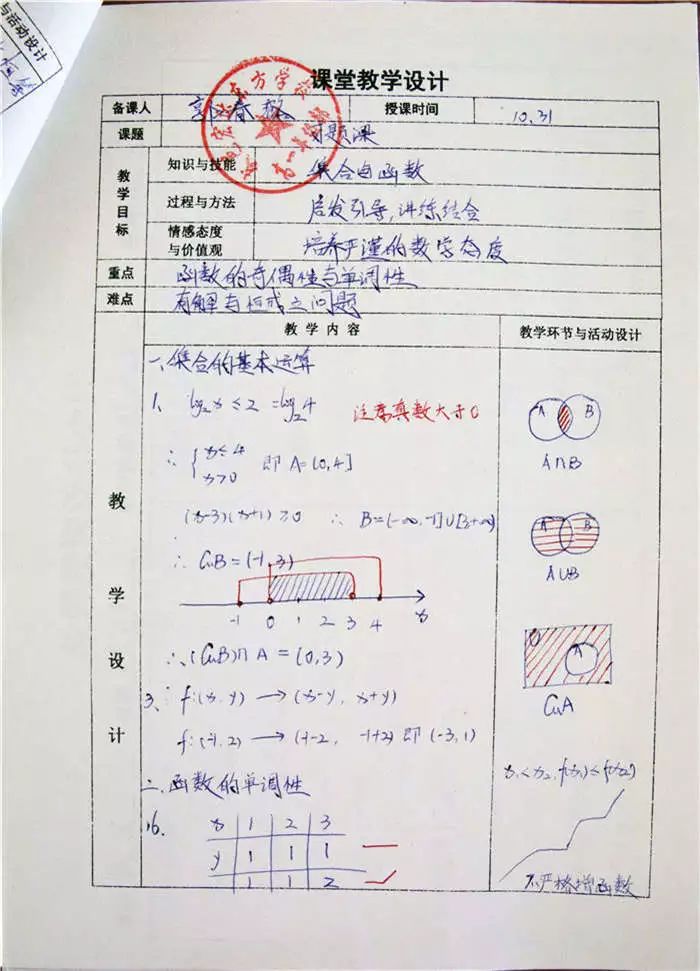 与活动设计
课堂教学设计
备课人 授课时间 10.31
课题 习题课
教学目标
知识与技能 集合与函数
过程与方法 启发引导,讲练结合
情感态度与价值观 培养严谨的数学态度
重点 函数的奇偶性与单调性
难点 有解与恒成立问题
教学内容 教学环节与活动设计
教学设计
一、集合的基本运算
1、 log₂x ≤ 2 = log₂4 注意真数大于0
∴ { x≤4 x>0 即 A=(0,4]
(x-3)(x+1)≥0 ∴ B=(-∞,-1]∪[3,+∞)
∴ CuB=(-1,3)
-1 0 1 2 3 4 x
∴ (CuB)∩A = (0,3)
3、 f:(x,y) → (x-y, x+y)
f:(-1,2) → (-1-2, -1+2) 即 (-3,1)
二、函数的单调性
16. x 1 2 3
y 1 1 1
1 1 2
A B
A∩B
A B
A∪B
U A
CuA
x₁<x₂, f(x₁)≤f(x₂)
不严格增函数